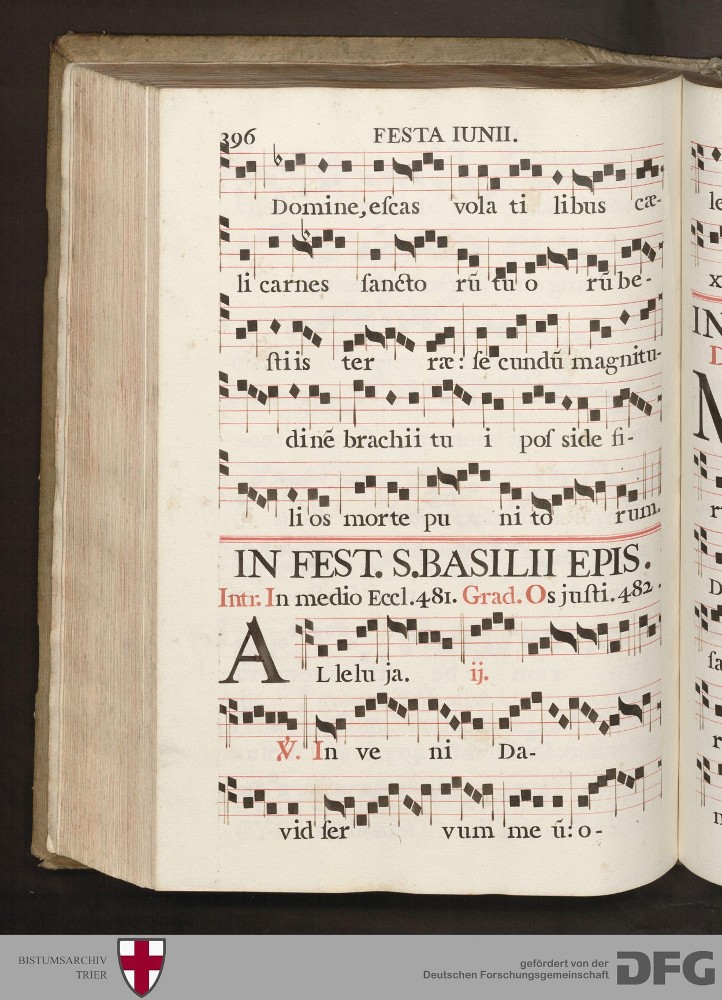 396 FESTA IUNII.
Domine, eſcas vola ti libus cæ-
li carnes ſancto rũ tu o rũ be-
ſtiis ter ræ: ſe cundũ magnitu-
dinẽ brachii tu i poſ side fi-
li os morte pu ni to rum.
IN FEST. S. BASILII EPIS.
Intr. In medio Eccl. 481. Grad. Os juſti. 482.
A L le lu ja. ij.
℣. In ve ni Da-
vid ſer vum me ũ: o-
BISTUMSARCHIV
TRIER
gefördert von der
Deutschen Forschungsgemeinschaft
DFG